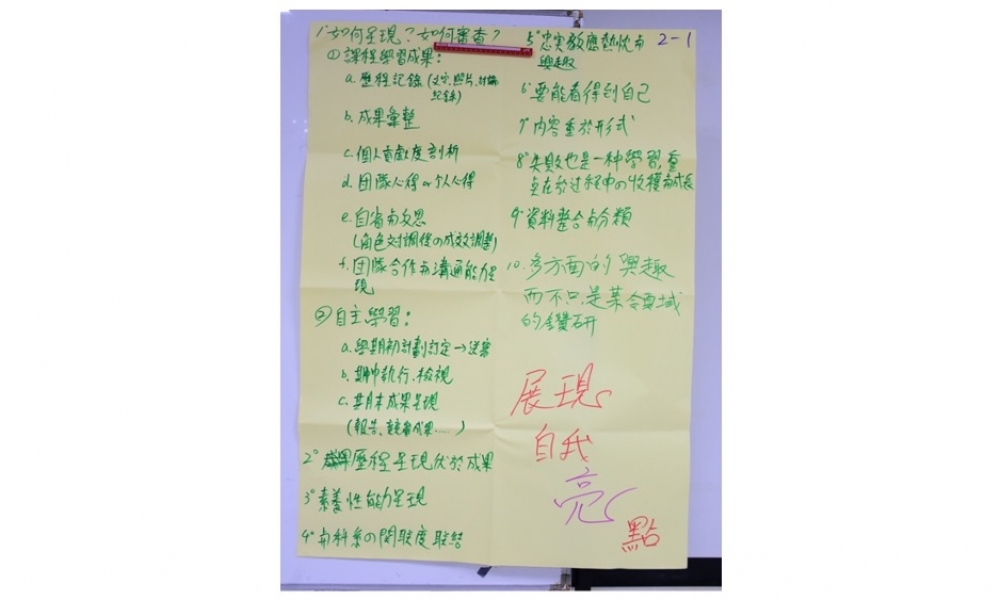 1° 如何呈現?如何審查?
① 課程學習成果:
a. 歷程記錄(文字、照片、討論
記錄)
b. 成果彙整
c. 個人貢獻度剖析
d. 团隊心得 or 个人心得
e. 自省与反思
(角色对調後の成效調整)
f. 团隊合作与溝通能力呈
現
② 自主學習:
a. 學期初計劃訂定→送審
b. 期中執行、檢視
c. 期末成果呈現
(報告、競賽成果.....)
2° 歷程呈現优於成果
3° 素養性能力呈現
4° 与科系の関联度联結
2-1
5° 忠实反應熱忱与
興趣
6° 要能看得到自己
7° 内容重於形式
8° 失敗也是一种學習,重
点在於过程中の收穫与成長
9° 資料整合与分類
10. 多方面的興趣
而不只是某領域
的鑽研
展現
自我
亮
點